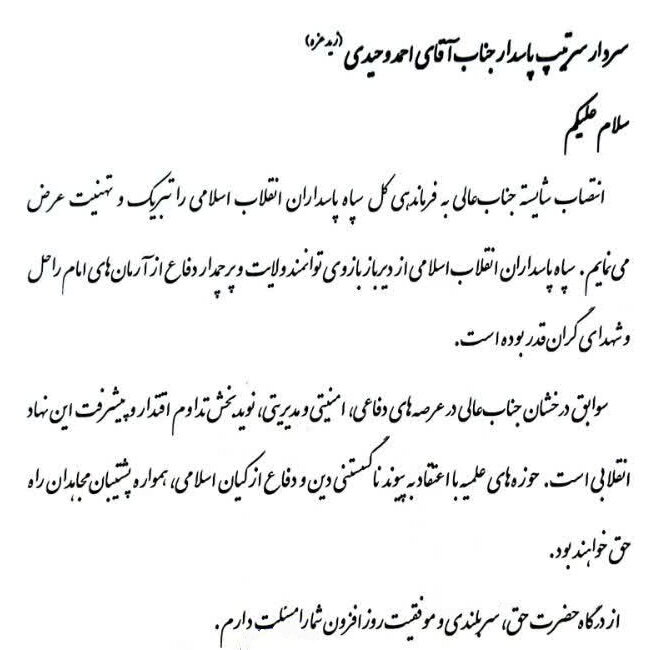 سردار سرتیپ پاسدار جناب آقای احمد وحیدی (زید عزه)
سلام علیکم
انتصاب شایسته جناب‌عالی به فرماندهی کل سپاه پاسداران انقلاب اسلامی را تبریک و تهنیت عرض
می‌نمایم. سپاه پاسداران انقلاب اسلامی از دیرباز بازوی توانمند ولایت و پرچمدار دفاع از آرمان‌های امام راحل
و شهدای گران‌قدر بوده است.
سوابق درخشان جناب‌عالی در عرصه‌های دفاعی، امنیتی و مدیریتی، نویدبخش تداوم اقتدار و پیشرفت این نهاد
انقلابی است. حوزه‌های علمیه با اعتقاد به پیوند ناگسستنی دین و دفاع از کیان اسلامی، همواره پشتیبان مجاهدان راه
حق خواهند بود.
از درگاه حضرت حق، سربلندی و موفقیت روزافزون شما را مسئلت دارم.